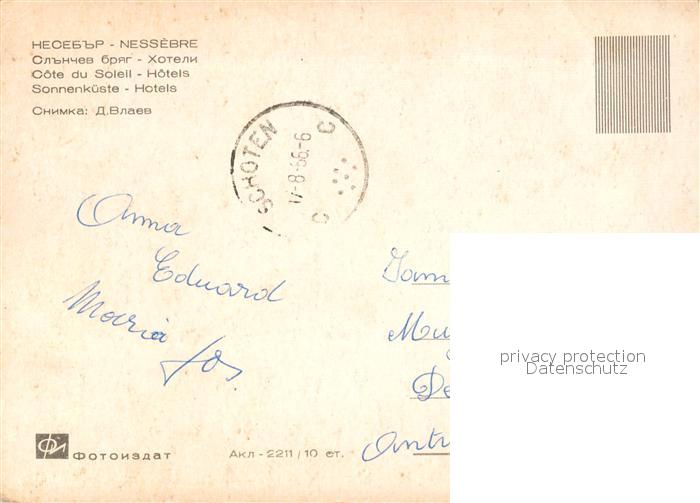 НЕСЕБЪР - NESSÈBRE
Слънчев бряг - Хотели
Côte du Soleil - Hôtels
Sonnenküste - Hotels
Снимка: Д.Влаев
SCHOTEN
17-8-66.-6
C C
Anna
Eduard
Maria
Jos.
Fam
De
Antw
privacy protection
Datenschutz
Фотоиздат
Акл - 2211 / 10 ст.